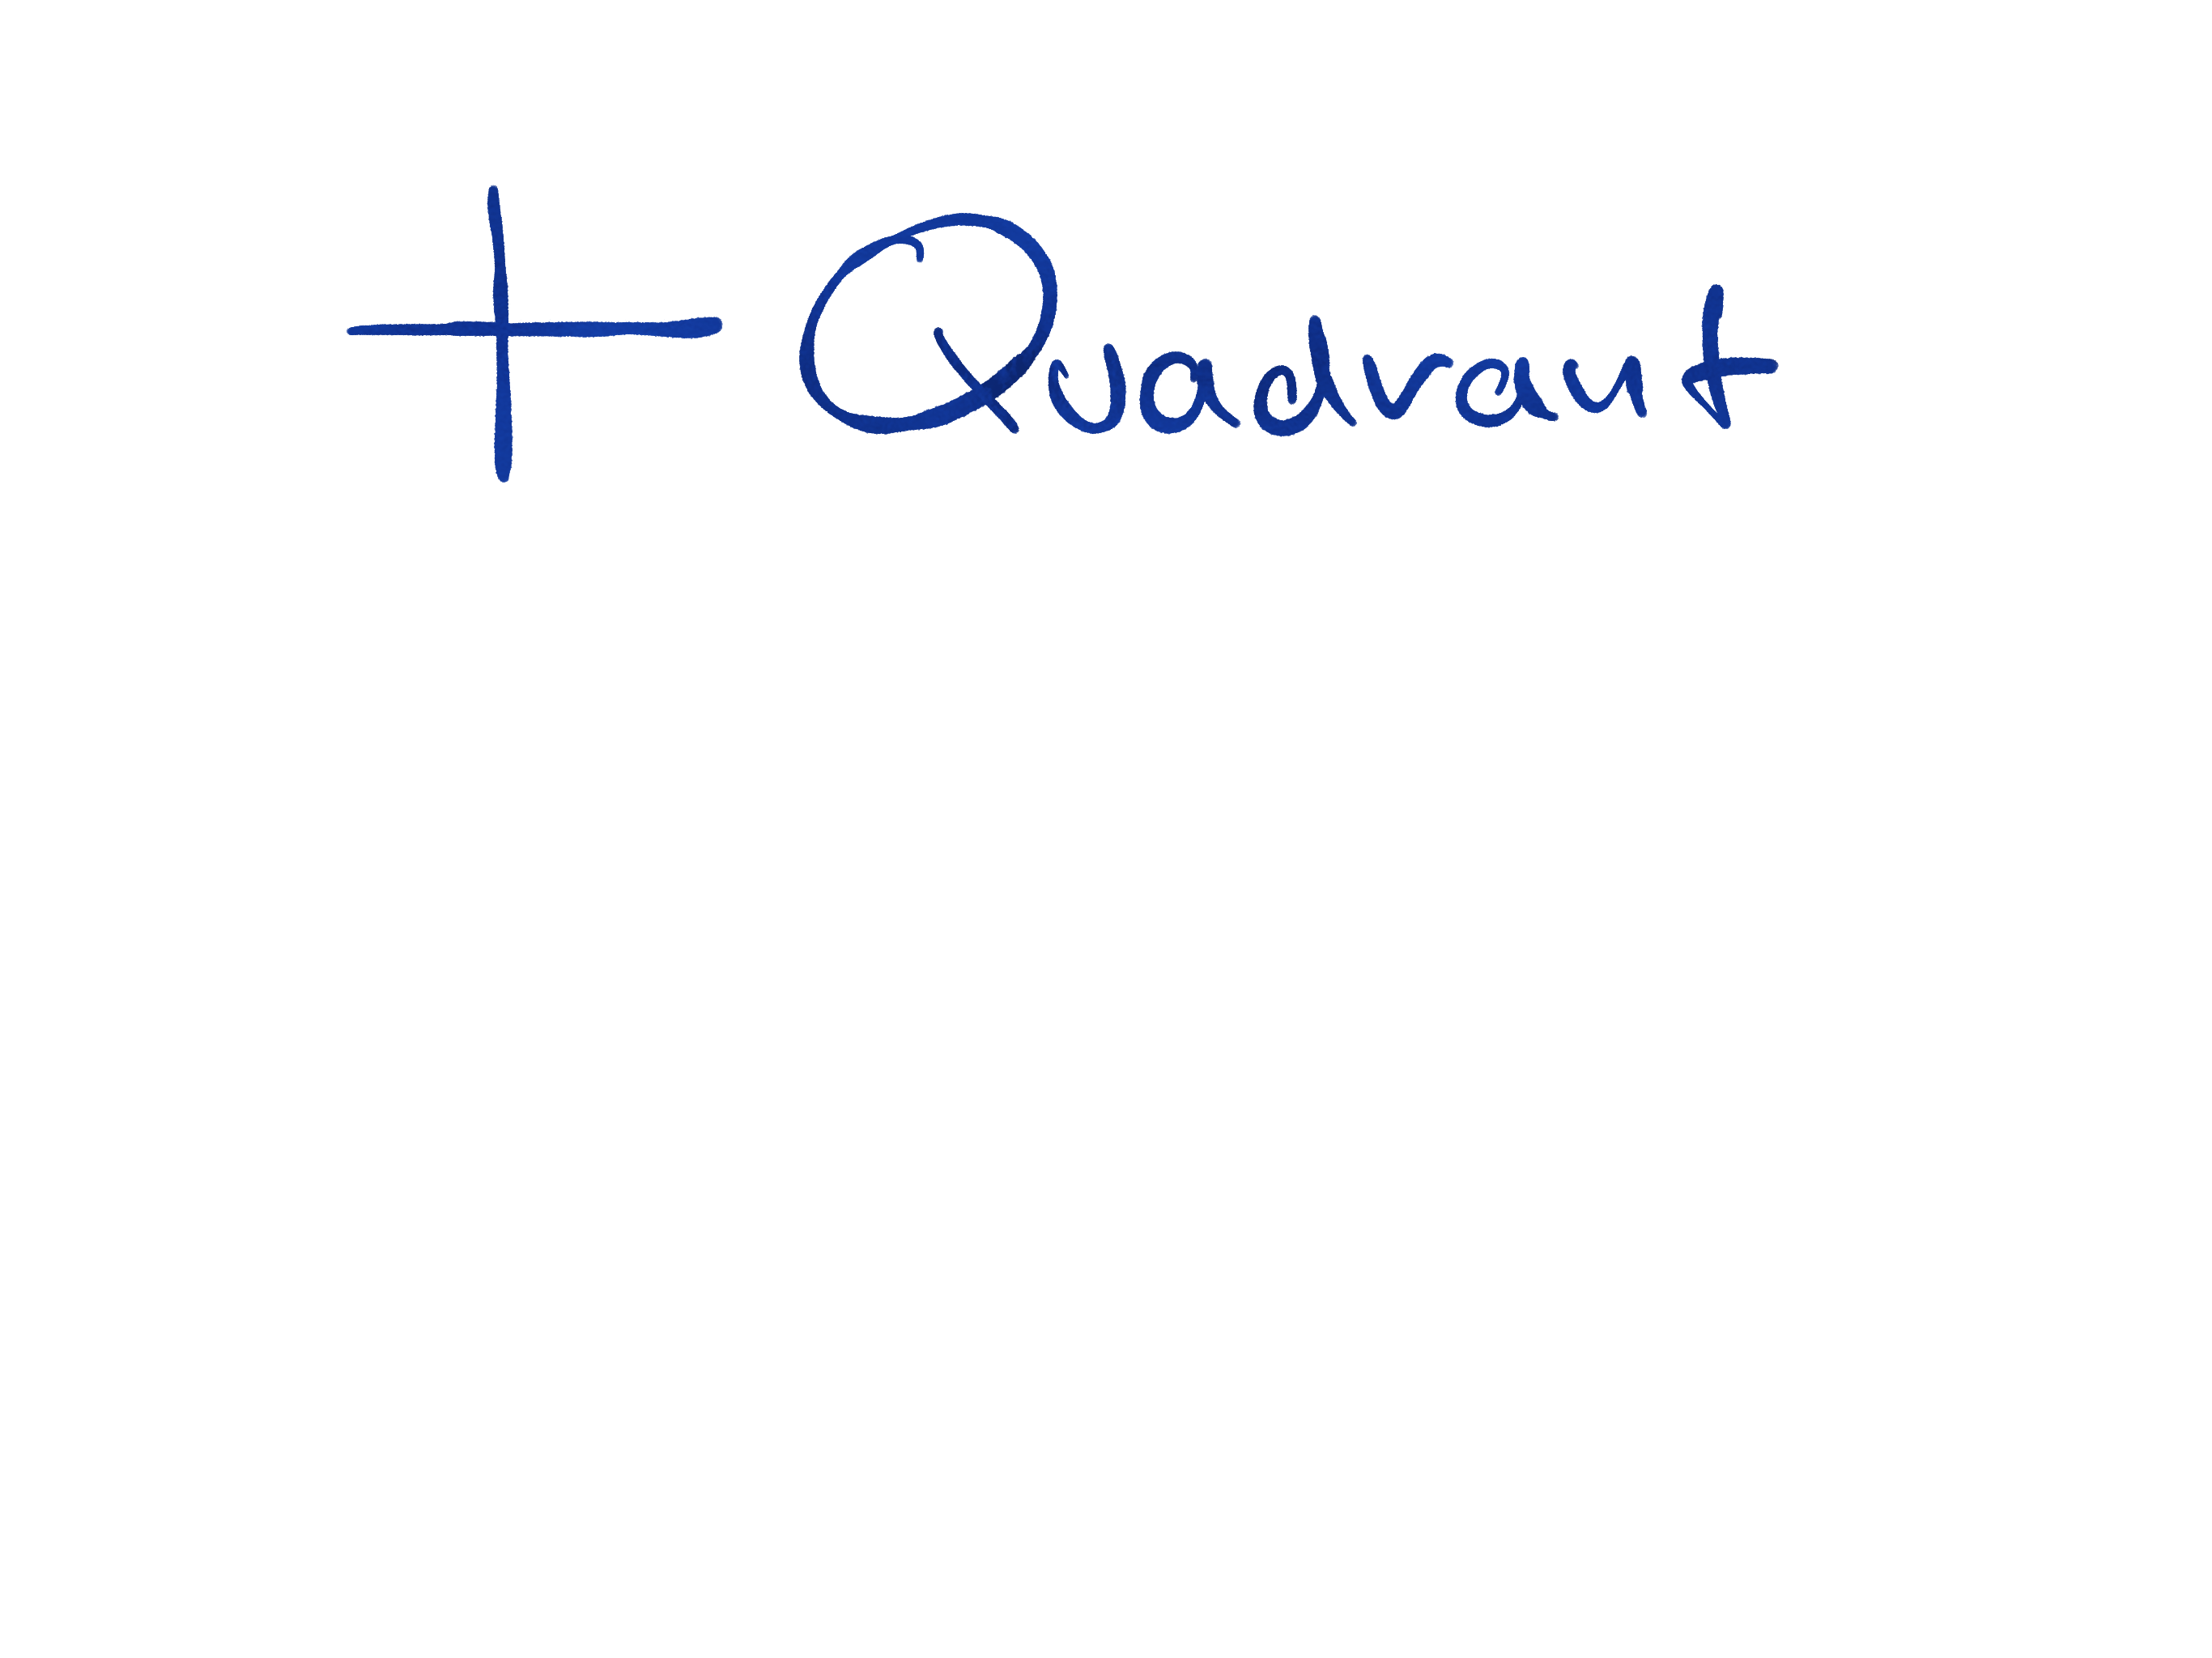 + Quadrant